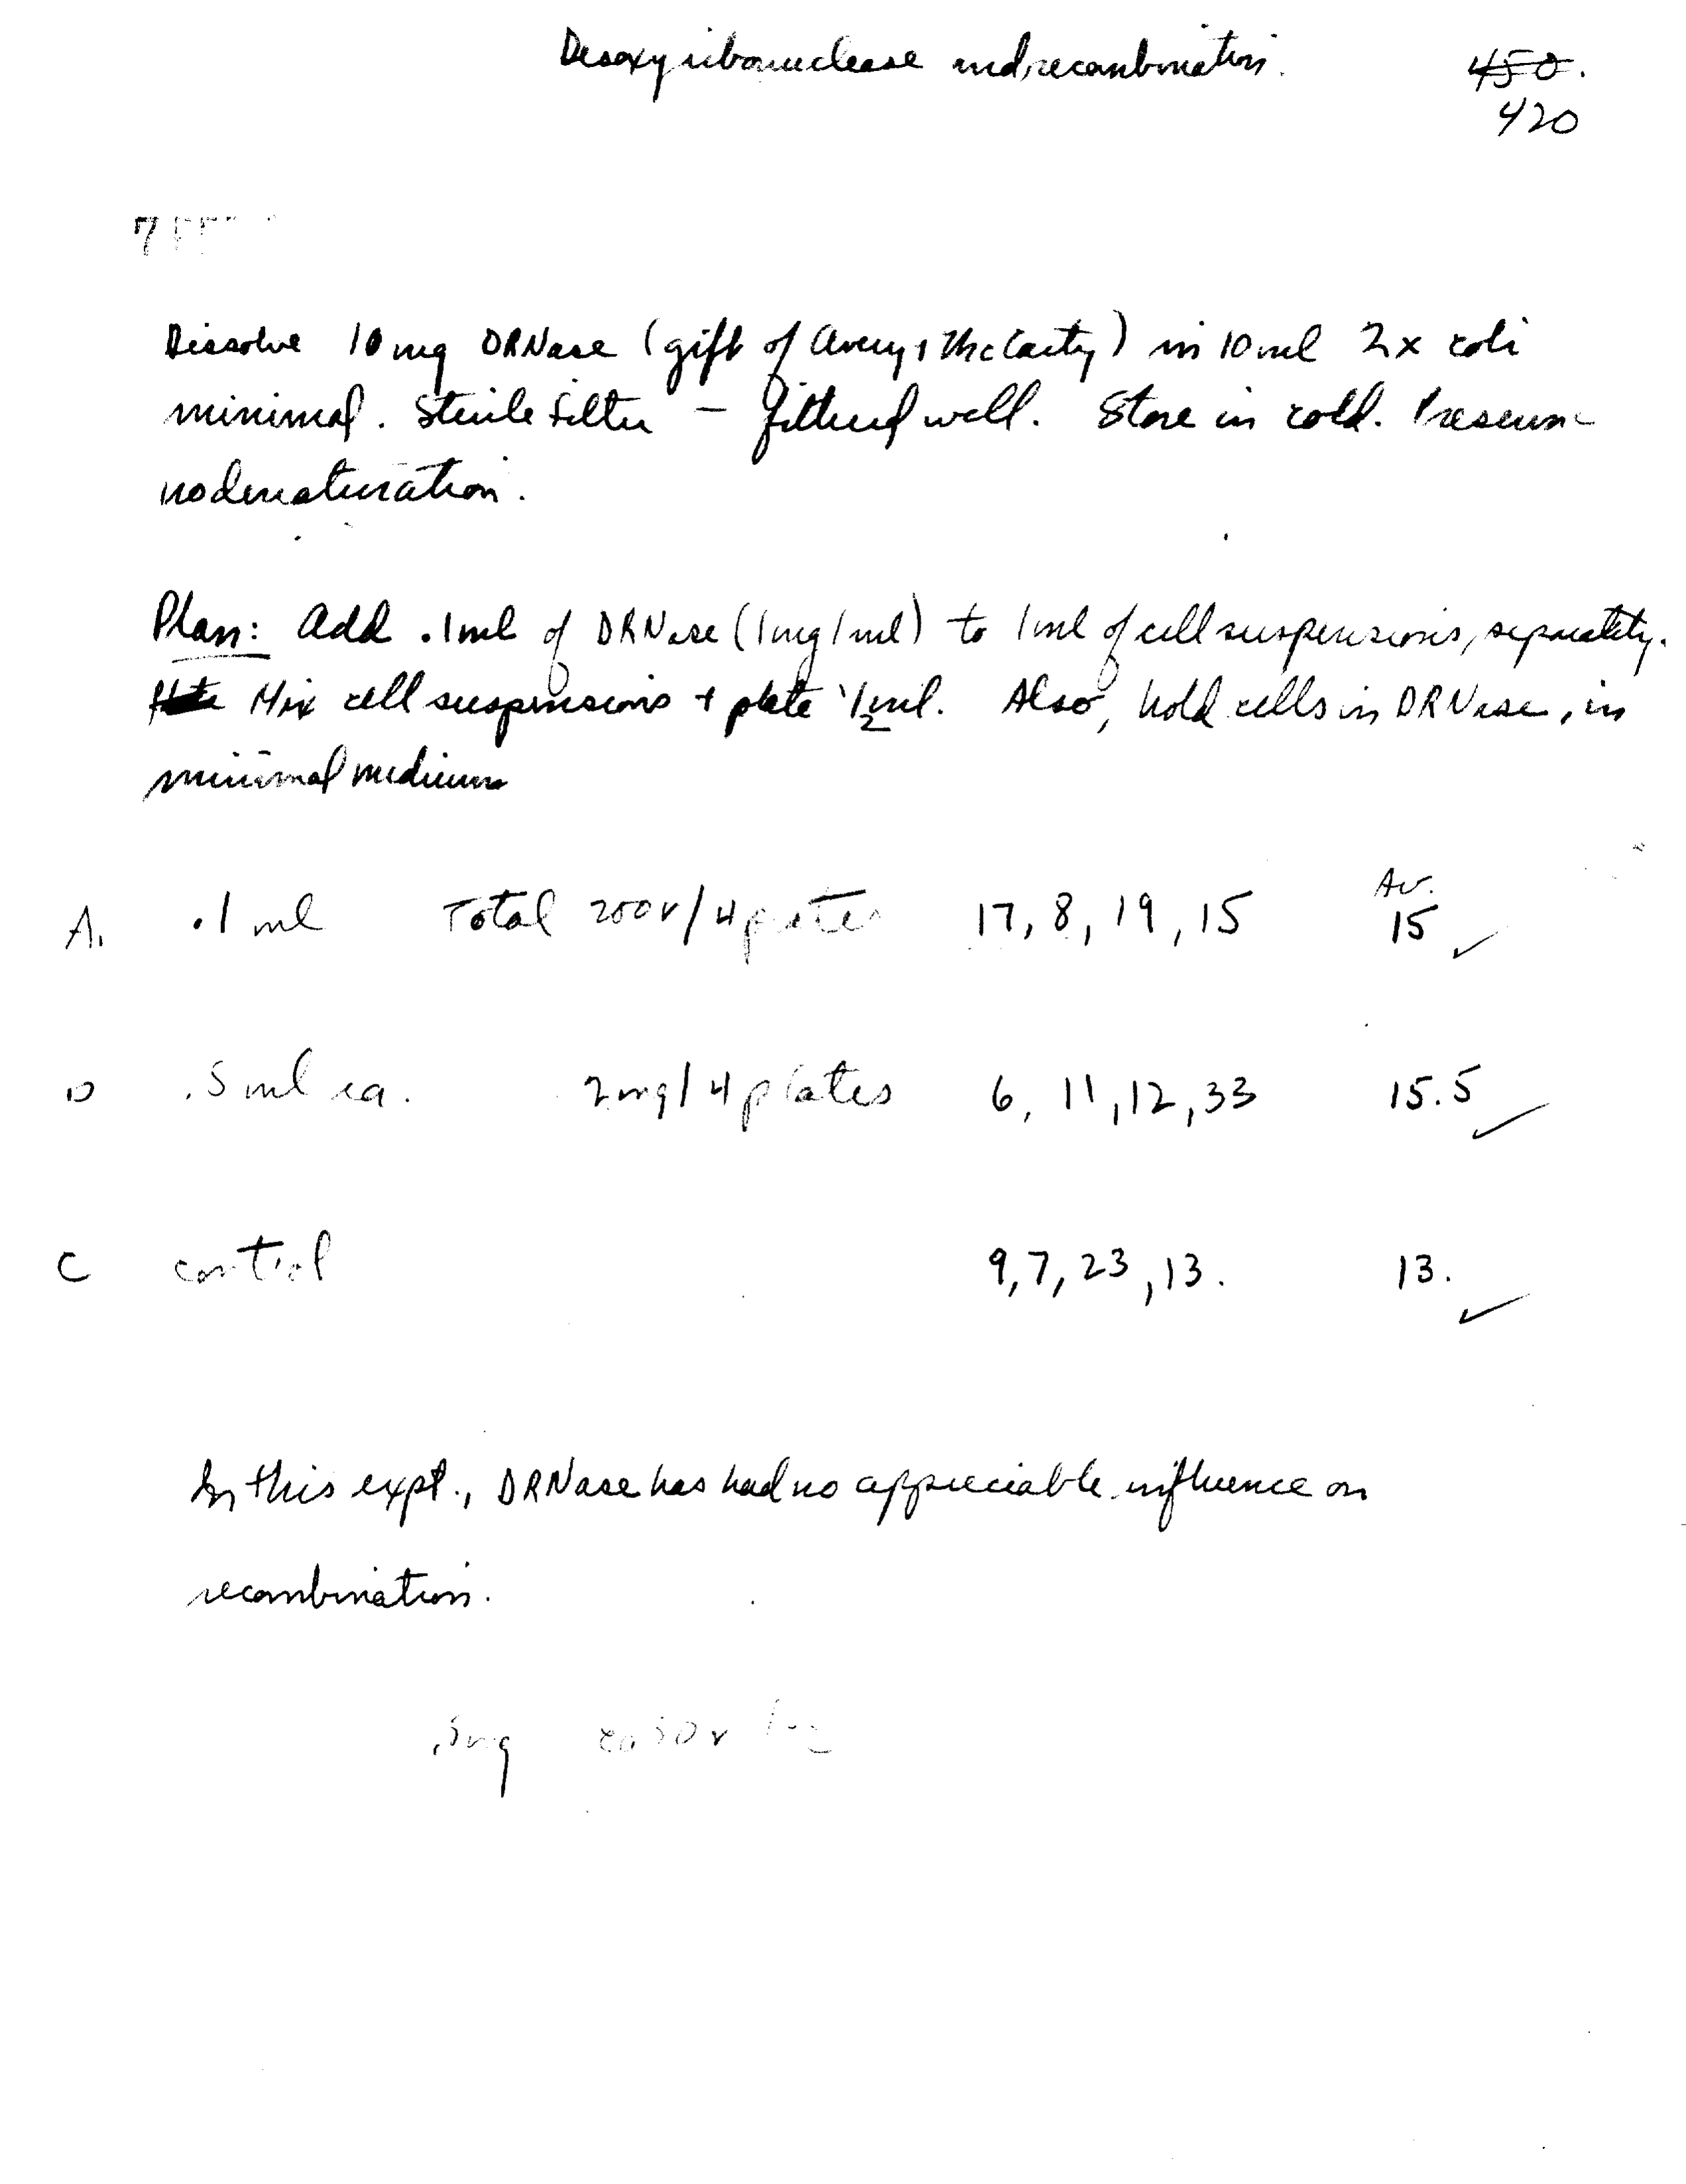 Desoxyribonuclease and recombination.
450.
420
7
Dissolve 10 mg DRNase (gift of Avery + McCarty) in 10 ml 2x coli
minimal. Sterile filter – filtered well. Store in cold. Presume
no denaturation.
Plan: Add .1ml of DRNase (1mg/ml) to 1ml of cell suspensions, separately.
Mix cell suspensions + plate 1/2 ml. Also, hold cells in DRNase, in
minimal medium
Av.
A. .1 ml Total 200γ/4 plates 17, 8, 19, 15 15 ✓
.5 ml ea. 2mg/4 plates 6, 11, 12, 33 15.5 ✓
C control 9, 7, 23, 13. 13. ✓
In this expt., DRNase has had no appreciable influence on
recombination.